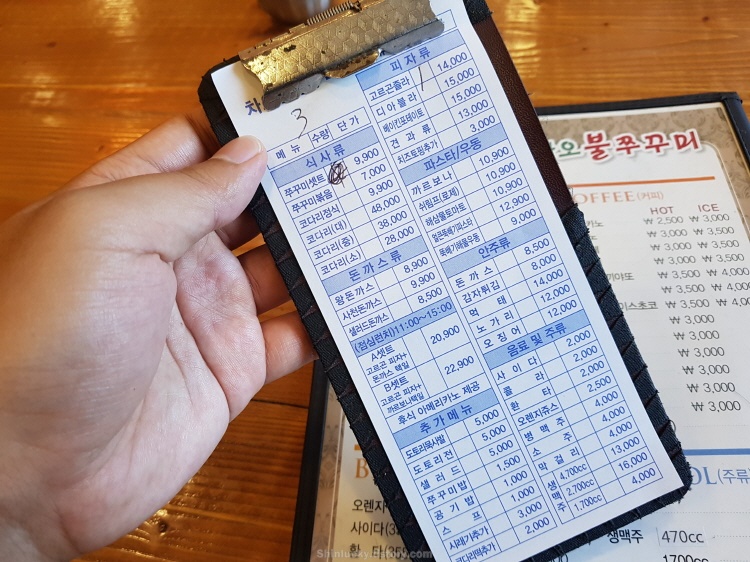 차
3
메 뉴 수량 단 가
식 사 류
쭈꾸미셋트 9,900
쭈꾸미볶음 7,000
코다리정식 9,900
코다리(대) 48,000
코다리(중) 38,000
코다리(소) 28,000
돈 까 스 류
왕돈까스 8,900
사천돈까스 9,900
샐러드돈까스 8,500
(점심런치)11:00~15:00
A셋트
고르곤 피자+
돈까스 택일
20,900
B셋트
고르곤 피자+
까르보나택일
22,900
후식 아메리카노 제공
추 가 메 뉴
도토리묵사발 5,000
도 토 리 전 5,000
샐 러 드 5,000
쭈꾸미밥 1,500
공 기 밥 1,000
스 프 1,000
사레가추가 3,000
코다리떡추가 2,000
피 자 류
고르곤졸라 / 14,000
디 아 블 라 15,000
베이컨포테이토 15,000
견 과 류 13,000
치즈토핑추가 3,000
파스타/우동
까 르 보 나 10,900
쉬림프(로제) 10,900
해삼물토마토 10,900
얼큰뚝배기파스타 12,900
뚝배기해물우동 9,000
안주류
돈 까 스 8,500
감자튀김 8,000
먹 태 14,000
노 가 리 12,000
오 징 어 12,000
음료 및 주류
사 이 다 2,000
콜 라 2,000
환 타 2,000
오렌지쥬스 2,500
병 맥 주 4,000
소 주 4,000
막 걸 리 4,000
생맥주 4,700cc 13,000
2,700cc 16,000
1,700cc 4,000
오불쭈꾸미
OFFEE(커피)
HOT ICE
카노 ₩ 2,500 ₩ 3,000
₩ 3,000 ₩ 3,500
₩ 3,000 ₩ 3,500
끼아또 ₩ 3,500 ₩ 4,000
₩ 3,500 ₩ 4,00
이스초코 ₩ 3,500 ₩ 4,00
₩ 3,000
₩ 3,000
₩ 3,000
₩ 3,000
₩ 3,000
₩ 3,000
B
오렌지
사이다(3
환 타(35
OL(주류
생맥주 470cc
1700cc
Shinlucky.tistory.com